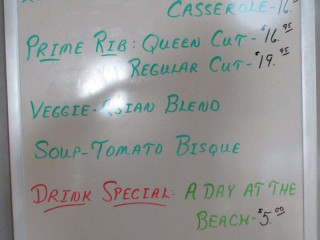 CASSEROLE-16.
PRIME RIB: QUEEN CUT-$16.95
REGULAR CUT-$19.95
VEGGIE-ASIAN BLEND
SOUP-TOMATO BISQUE
DRINK SPECIAL: A DAY AT THE
BEACH-$5.00